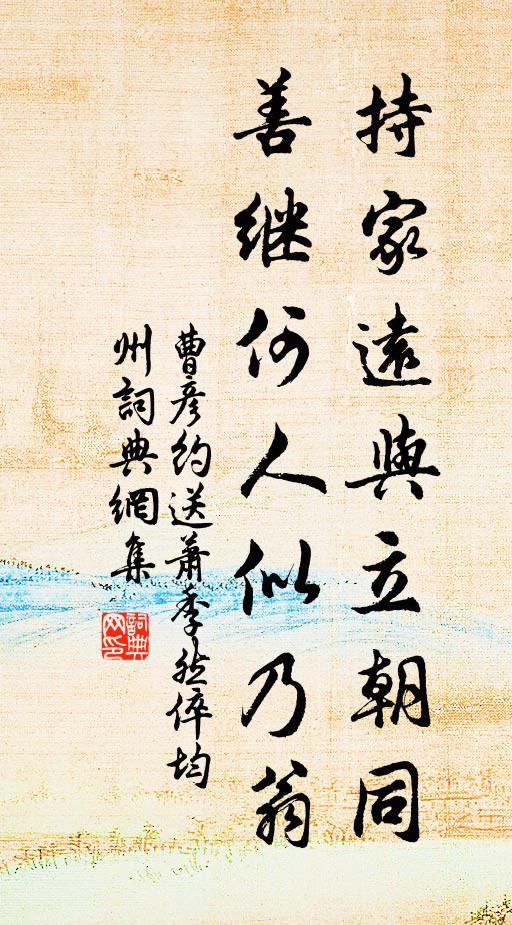 持家遠與立朝同
善继何人似乃翁
曹彦约送萧季然倅均
州詞典網集
詞典网印